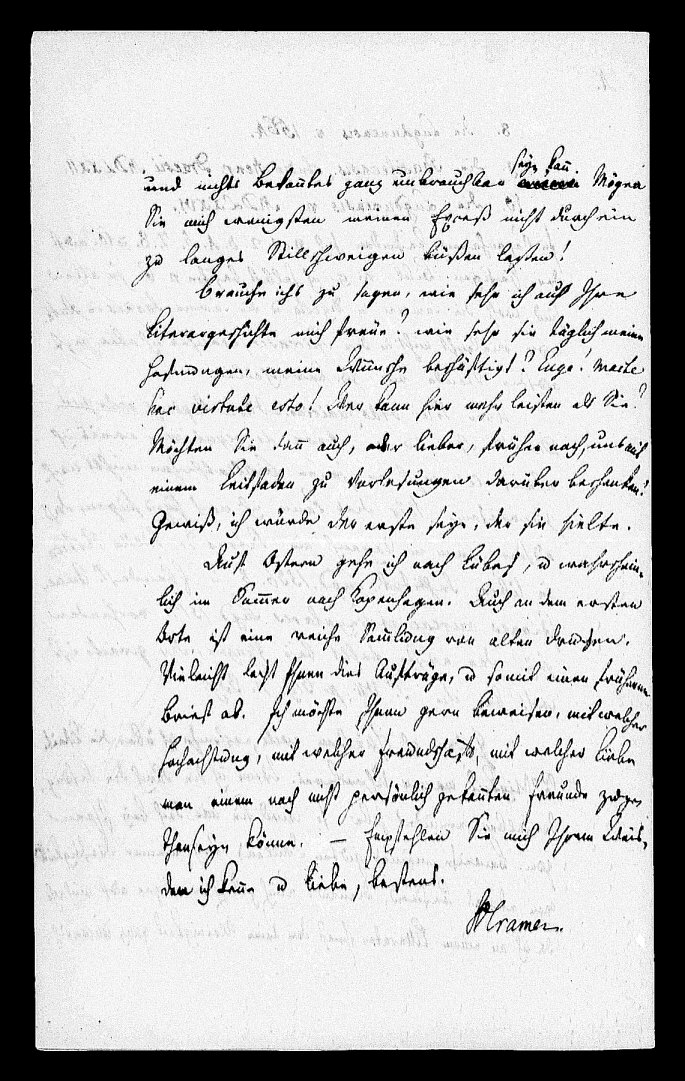 seyn kann
und nichts Bekanntes ganz unbrauchbar Mögen
Sie mich wenigsten meinen Exceß nicht durch ein
zu langes Stillschweigen büßen lassen!
Brauche ichs zu sagen, wie sehr ich auf Ihre
Literargeschichte mich freue? wie sehr sie täglich meine
Hofnungen, meine Wünsche beschäftigt? Euge! macte
hac virtute esto! Wer kann hier mehr leisten als Sie?
Möchten Sie dann auch, oder lieber, früher noch, uns mit
einem Leitfaden zu Vorlesungen darüber beschenken!
Gewiß, ich würde der erste seyn, der sie hielte.
Auf Ostern gehe ich nach Lübek, u wahrschein-
lich im Sommer nach Kopenhagen. Auch an dem ersten
Orte ist eine reiche Samlung von alten Drucken.
Vielleicht lockt Ihnen dies Aufträge, u somit einen frühern
Brief ab. Ich möchte Ihnen gern beweisen, mit welcher
Hochachtung, mit welcher Freundschaft, mit welcher Liebe
man einem noch nicht persönlich gekannten Freunde zuge-
than seyn könne. — Empfehlen Sie mich Ihrem Weis,
den ich kenne u liebe, bestens.
Cramer.